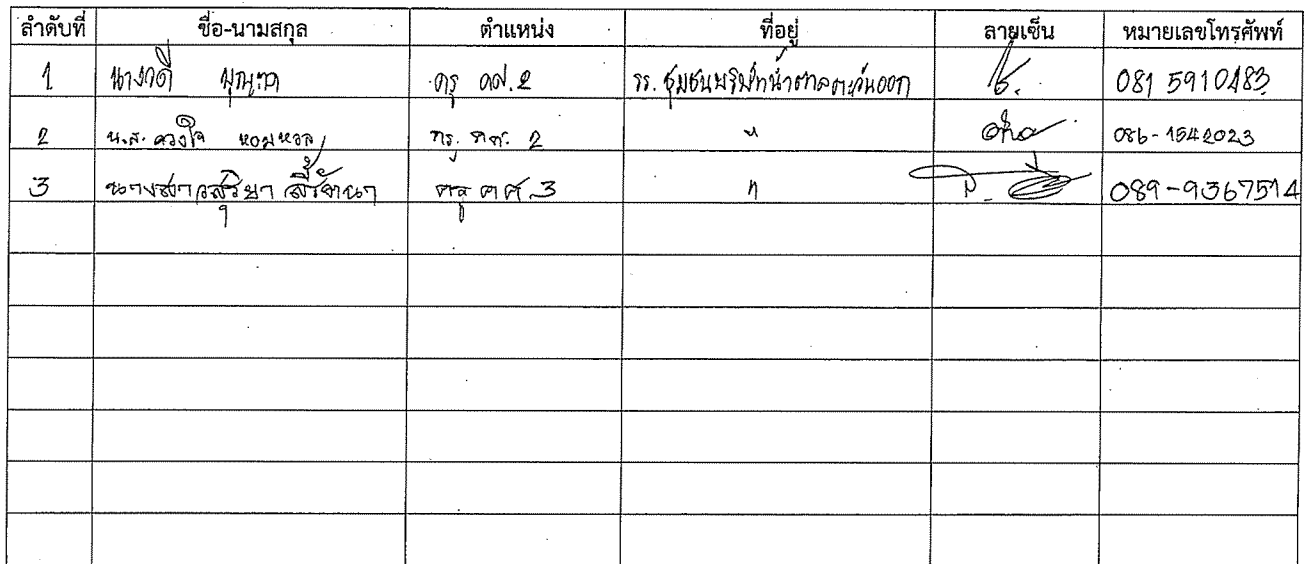 ลำดับที่ ชื่อ-นามสกุล ตำแหน่ง ที่อยู่ ลายเซ็น หมายเลขโทรศัพท์
1 ครู คศ.2 รร. ชุมชนบริษัทน้ำตาลตะวันออก 081 5910483
2 น.ส. ดวงใจ หอมหวล ครู. คศ. 2 " 086-1542023
3 นางสาวสุริยา ครู คศ 3 " 089-9367514